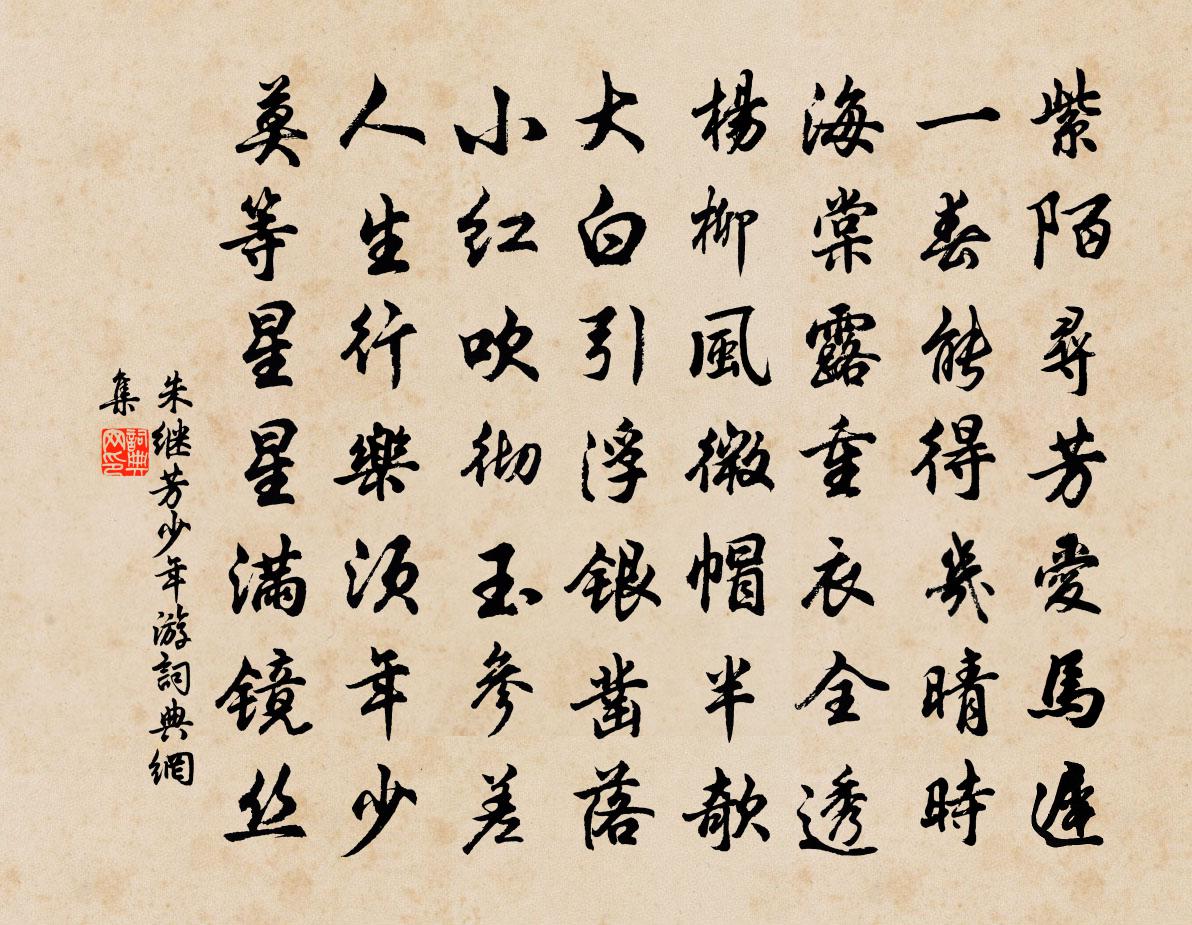 紫陌尋芳愛馬遲
一春能得幾晴時
海棠露重衣全透
楊柳風微帽半欹
大白引浮銀凿落
小红吹彻玉參差
人生行樂须年少
莫等星星满镜丝
朱继芳少年游詞典網
集
詞典网印